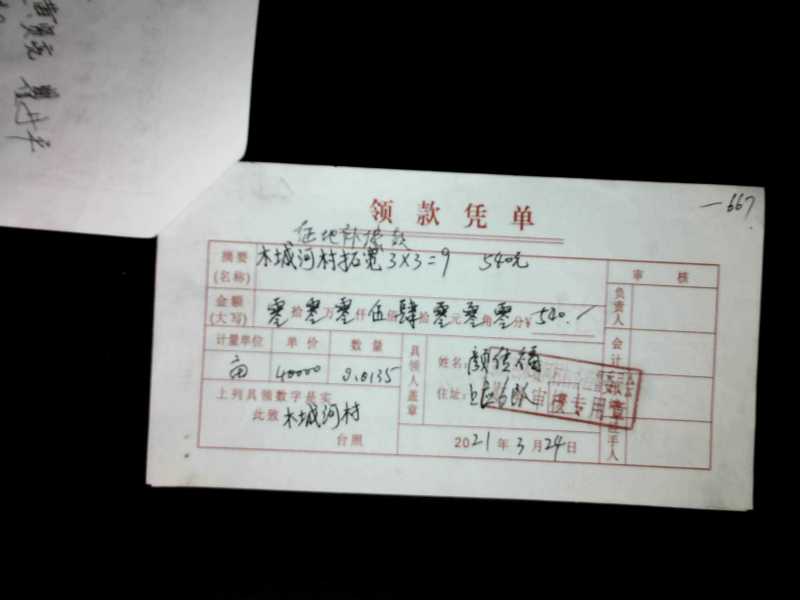 一667
领款凭单
征地补偿款
摘要(名称) 木城河村拓宽 3×3=9 540元
审核
金额(大写) 零拾零万零仟伍佰肆拾零元零角零分¥540./
负责人
计量单位 单价 数量
亩 40000 0.0135
会计
具领人盖章
姓名:
住址:
审核专用章
上列具领数字是实
此致 木城河村
台照
2021年3月24日